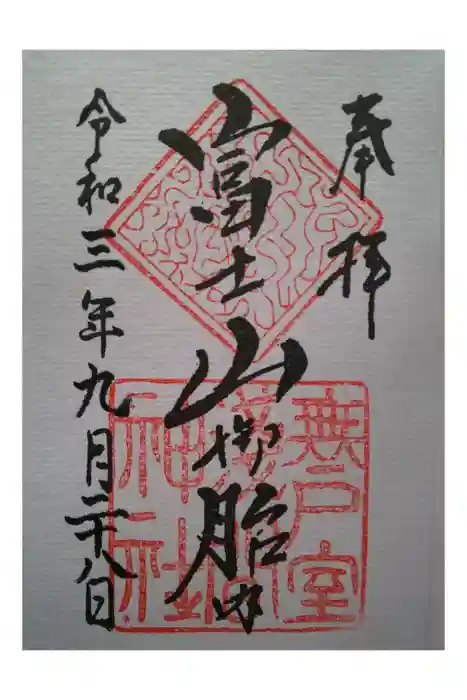 奉拝
富士山御胎内
令和三年九月二十八日
無戸室
神社